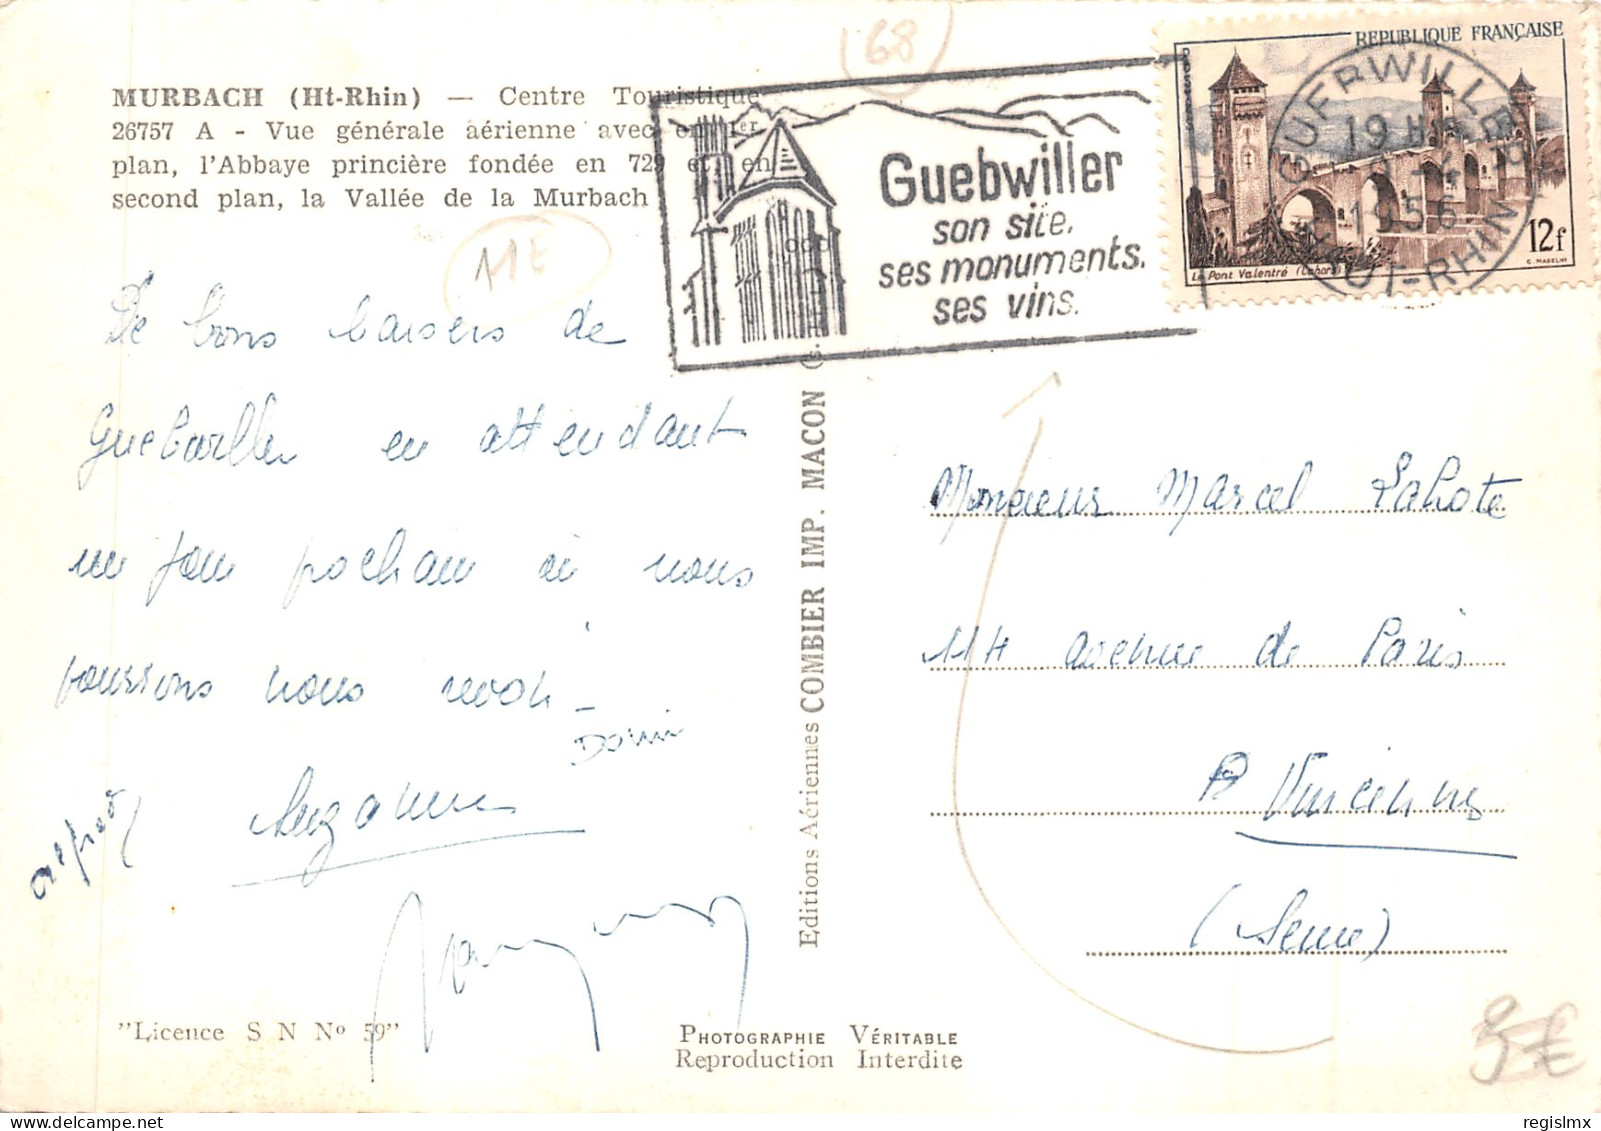 (68)
MURBACH (Ht-Rhin) — Centre Touristique
26757 A - Vue générale aérienne avec en 1er
plan, l'Abbaye princière fondée en 729 et, en
second plan, la Vallée de la Murbach
11€
Guebwiller
son site,
ses monuments,
ses vins.
REPUBLIQUE FRANÇAISE
12f
Le Pont Valentré (Cahors)
C. MAZELIN
GUEBWILLER
19 H
1956
HAUT-RHIN
De bons baisers de
Guebwiller en attendant
un jour prochain où nous
pourrons nous revoir _
Domi
Suzanne
alfred
Editions Aériennes COMBIER IMP. MACON
Monsieur Marcel Lahote
114 avenue de Paris
Vincennes
(Seine)
"Licence S N No 59"
PHOTOGRAPHIE VÉRITABLE
Reproduction Interdite
9€
regislmx